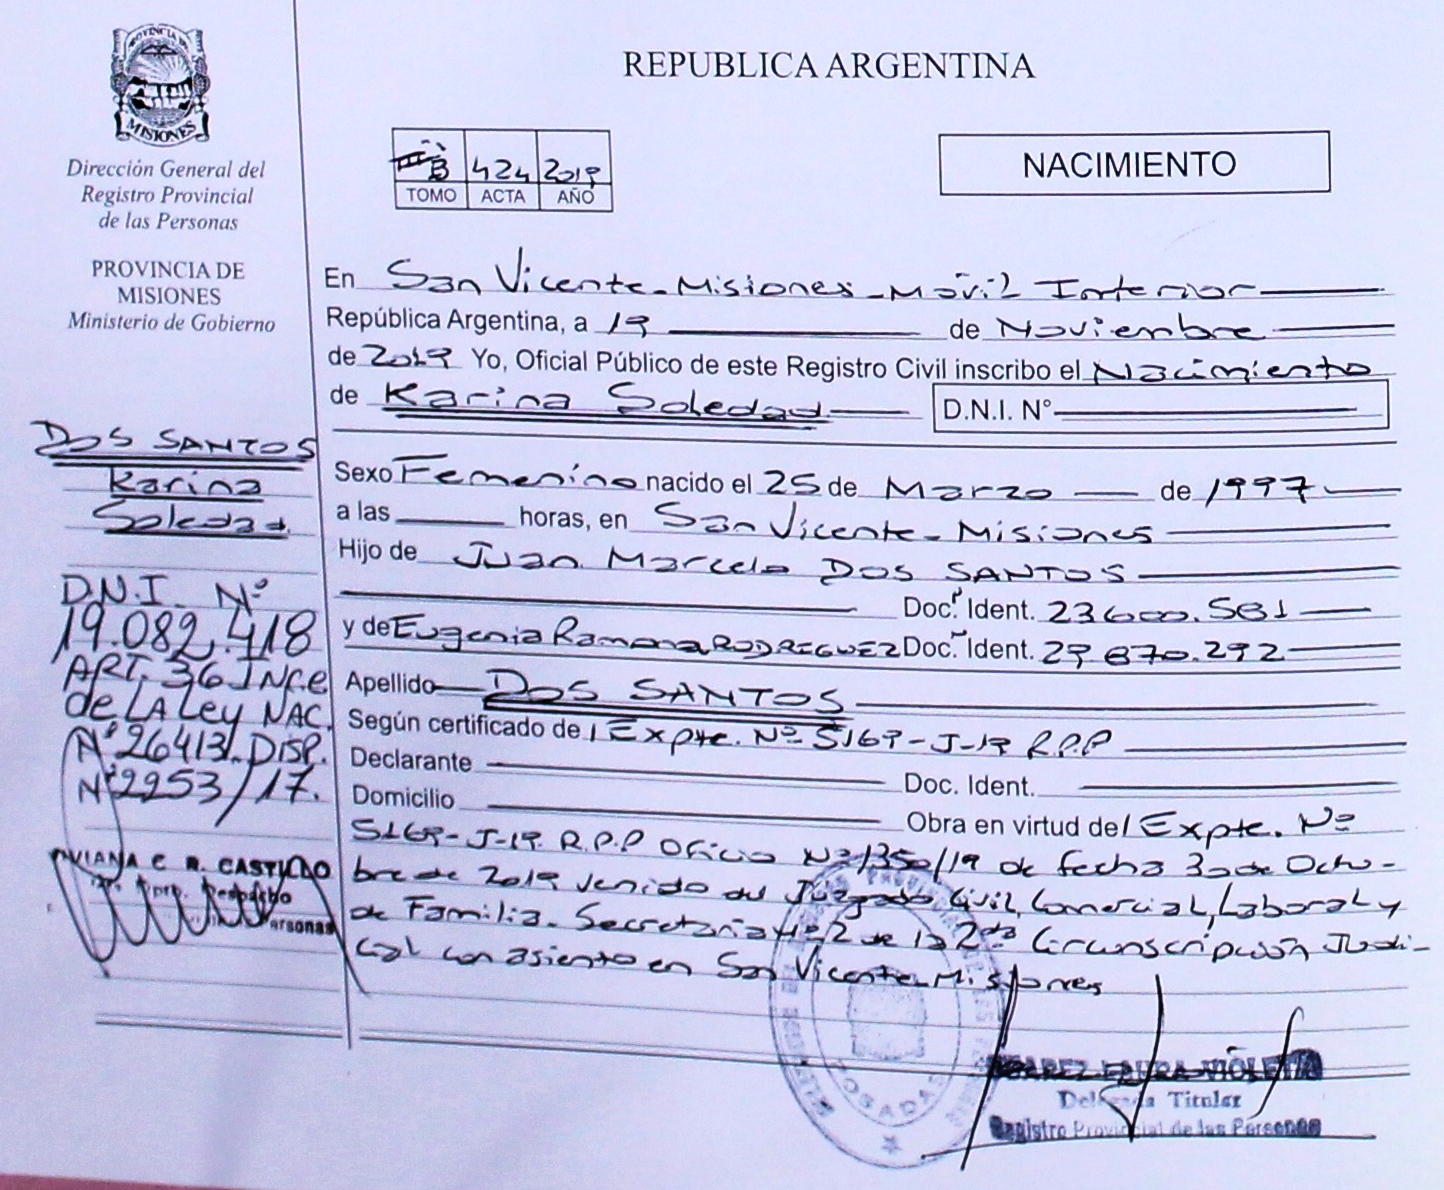 PROVINCIA DE
MISIONES
Dirección General del
Registro Provincial
de las Personas
PROVINCIA DE
MISIONES
Ministerio de Gobierno
REPUBLICA ARGENTINA
B 424 2019
TOMO ACTA AÑO
NACIMIENTO
En San Vicente - Misiones - Móvil Interior
República Argentina, a 19 de Noviembre
de 2019 Yo, Oficial Público de este Registro Civil inscribo el Nacimiento
de Karina Soledad D.N.I. N°
Sexo Femenino nacido el 25 de Marzo de 1997
a las horas, en San Vicente - Misiones
Hijo de Juan Marcelo DOS SANTOS
Doc. Ident. 23600.581
y de Eugenia Ramona RODRIGUEZ Doc. Ident. 29.870.292
Apellido DOS SANTOS
Según certificado de / Expte. Nº 5169-J-19 R.P.P
Declarante Doc. Ident.
Domicilio Obra en virtud de / Expte. Nº
5169-J-19. R.P.P Oficio Nº 1350/19 de fecha 30 de Octu-
bre de 2019 venido del Juzgado Civil, Comercial, Laboral y
de Familia. Secretaría Nº 2 de la 2da Circunscripción Judi-
cial con asiento en San Vicente - Misiones
DOS SANTOS
Karina
Soledad
D.N.I. Nº
19.082.418
ART. 36 INC.e
de LA Ley NAC.
Nº 26413. DISP.
Nº 2253/17.
VIANA C R. CASTILLO
Despacho
Personas
POSADAS
LAURA VIOLETA
Delegada Titular
Registro Provincial de las Personas